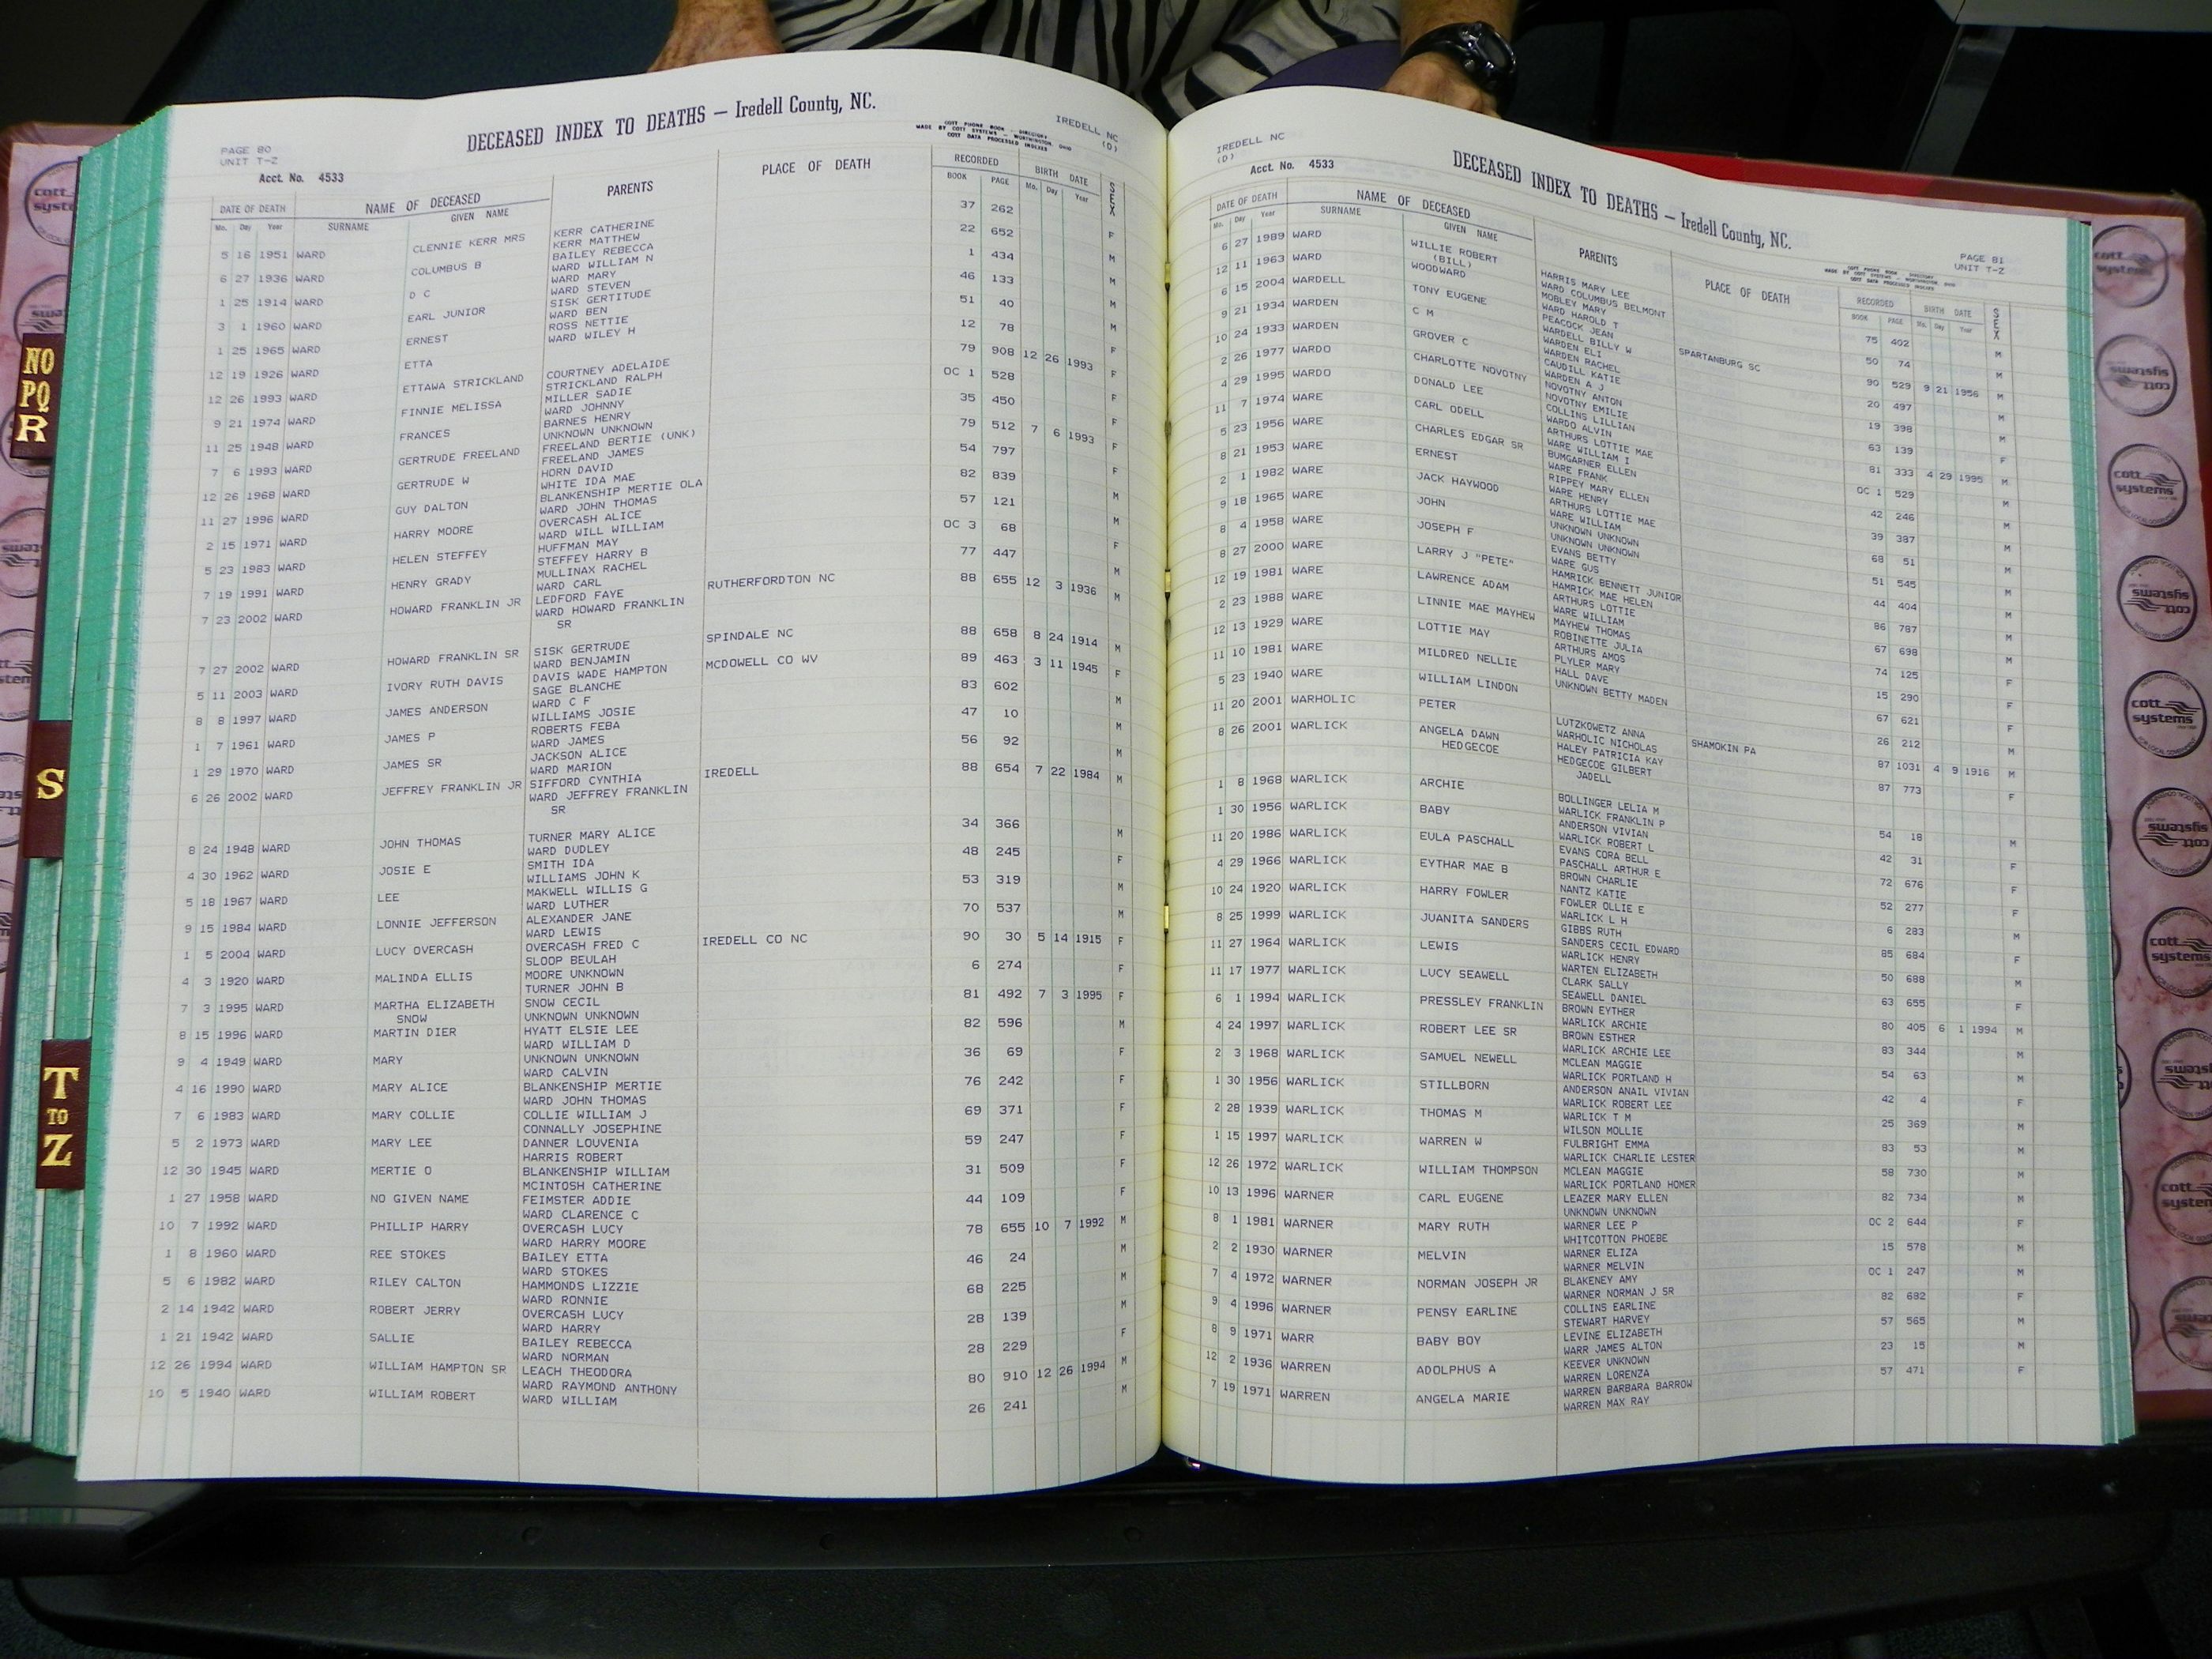 DECEASED INDEX TO DEATHS — Iredell County, NC.
IREDELL NC
(D)
PAGE 80
UNIT T-Z
COTT PHONE BOOK - DIRECTORY
MADE BY COTT SYSTEMS - WORTHINGTON, OHIO
COTT DATA PROCESSED INDEXES
Acct. No. 4533
DATE OF DEATH NAME OF DECEASED PARENTS PLACE OF DEATH RECORDED BIRTH DATE SEX
Mo. Day Year SURNAME GIVEN NAME BOOK PAGE Mo. Day Year
5 16 1951 WARD CLENNIE KERR MRS KERR CATHERINE 37 262 F
KERR MATTHEW
6 27 1936 WARD COLUMBUS B BAILEY REBECCA 22 652 M
WARD WILLIAM N
1 25 1914 WARD D C WARD MARY 1 434 M
WARD STEVEN
3 1 1960 WARD EARL JUNIOR SISK GERTITUDE 46 133 M
WARD BEN
1 25 1965 WARD ERNEST ROSS NETTIE 51 40 M
WARD WILEY H
12 19 1926 WARD ETTA 12 78 F
12 26 1993 WARD ETTAWA STRICKLAND COURTNEY ADELAIDE 79 908 12 26 1993 F
STRICKLAND RALPH
9 21 1974 WARD FINNIE MELISSA MILLER SADIE OC 1 528 F
WARD JOHNNY
11 25 1948 WARD FRANCES BARNES HENRY 35 450 F
UNKNOWN UNKNOWN
7 6 1993 WARD GERTRUDE FREELAND FREELAND BERTIE (UNK) 79 512 7 6 1993 F
FREELAND JAMES
12 26 1968 WARD GERTRUDE W HORN DAVID 54 797 F
WHITE IDA MAE
11 27 1996 WARD GUY DALTON BLANKENSHIP MERTIE OLA 82 839 M
WARD JOHN THOMAS
2 15 1971 WARD HARRY MOORE OVERCASH ALICE 57 121 M
WARD WILL WILLIAM
5 23 1983 WARD HELEN STEFFEY HUFFMAN MAY OC 3 68 F
STEFFEY HARRY B
7 19 1991 WARD HENRY GRADY MULLINAX RACHEL 77 447 M
WARD CARL
7 23 2002 WARD HOWARD FRANKLIN JR LEDFORD FAYE RUTHERFORDTON NC 88 655 12 3 1936 M
WARD HOWARD FRANKLIN
SR
7 27 2002 WARD HOWARD FRANKLIN SR SISK GERTRUDE SPINDALE NC 88 658 8 24 1914 M
WARD BENJAMIN
5 11 2003 WARD IVORY RUTH DAVIS DAVIS WADE HAMPTON MCDOWELL CO WV 89 463 3 11 1945 F
SAGE BLANCHE
8 8 1997 WARD JAMES ANDERSON WARD C F 83 602 M
WILLIAMS JOSIE
1 7 1961 WARD JAMES P ROBERTS FEBA 47 10 M
WARD JAMES
1 29 1970 WARD JAMES SR JACKSON ALICE 56 92 M
WARD MARION
6 26 2002 WARD JEFFREY FRANKLIN JR SIFFORD CYNTHIA IREDELL 88 654 7 22 1984 M
WARD JEFFREY FRANKLIN
SR
8 24 1948 WARD JOHN THOMAS TURNER MARY ALICE 34 366 M
WARD DUDLEY
4 30 1962 WARD JOSIE E SMITH IDA 48 245 F
WILLIAMS JOHN K
5 18 1967 WARD LEE MAKWELL WILLIS G 53 319 M
WARD LUTHER
9 15 1984 WARD LONNIE JEFFERSON ALEXANDER JANE 70 537 M
WARD LEWIS
1 5 2004 WARD LUCY OVERCASH OVERCASH FRED C IREDELL CO NC 90 30 5 14 1915 F
SLOOP BEULAH
4 3 1920 WARD MALINDA ELLIS MOORE UNKNOWN 6 274 F
TURNER JOHN B
7 3 1995 WARD MARTHA ELIZABETH SNOW CECIL 81 492 7 3 1995 F
SNOW UNKNOWN UNKNOWN
8 15 1996 WARD MARTIN DIER HYATT ELSIE LEE 82 596 M
WARD WILLIAM D
9 4 1949 WARD MARY UNKNOWN UNKNOWN 36 69 F
WARD CALVIN
4 16 1990 WARD MARY ALICE BLANKENSHIP MERTIE 76 242 F
WARD JOHN THOMAS
7 6 1983 WARD MARY COLLIE COLLIE WILLIAM J 69 371 F
CONNALLY JOSEPHINE
5 2 1973 WARD MARY LEE DANNER LOUVENIA 59 247 F
HARRIS ROBERT
12 30 1945 WARD MERTIE O BLANKENSHIP WILLIAM 31 509 F
MCINTOSH CATHERINE
1 27 1958 WARD NO GIVEN NAME FEIMSTER ADDIE 44 109 F
WARD CLARENCE C
10 7 1992 WARD PHILLIP HARRY OVERCASH LUCY 78 655 10 7 1992 M
WARD HARRY MOORE
1 8 1960 WARD REE STOKES BAILEY ETTA 46 24 M
WARD STOKES
5 6 1982 WARD RILEY CALTON HAMMONDS LIZZIE 68 225 M
WARD RONNIE
2 14 1942 WARD ROBERT JERRY OVERCASH LUCY 28 139 M
WARD HARRY
1 21 1942 WARD SALLIE BAILEY REBECCA 28 229 F
WARD NORMAN
12 26 1994 WARD WILLIAM HAMPTON SR LEACH THEODORA 80 910 12 26 1994 M
WARD RAYMOND ANTHONY
10 5 1940 WARD WILLIAM ROBERT WARD WILLIAM 26 241 M
DECEASED INDEX TO DEATHS — Iredell County, NC.
IREDELL NC
(D)
PAGE 81
UNIT T-Z
COTT PHONE BOOK - DIRECTORY
MADE BY COTT SYSTEMS - WORTHINGTON, OHIO
COTT DATA PROCESSED INDEXES
Acct. No. 4533
DATE OF DEATH NAME OF DECEASED PARENTS PLACE OF DEATH RECORDED BIRTH DATE SEX
Mo. Day Year SURNAME GIVEN NAME BOOK PAGE Mo. Day Year
6 27 1989 WARD WILLIE ROBERT HARRIS MARY LEE 75 402 M
(BILL) WARD COLUMBUS BELMONT
12 11 1963 WARD WOODWARD MOBLEY MARY 50 74 M
WARD HAROLD T
6 15 2004 WARDELL TONY EUGENE PEACOCK JEAN SPARTANBURG SC 90 529 9 21 1956 M
WARDELL BILLY W
9 21 1934 WARDEN C M WARDEN ELI 20 497 M
WARDEN RACHEL
10 24 1933 WARDEN GROVER C CAUDILL KATIE 19 398 M
WARDEN A J
2 26 1977 WARDO CHARLOTTE NOVOTNY NOVOTNY ANTON 63 139 F
NOVOTNY EMILIE
4 29 1995 WARDO DONALD LEE COLLINS LILLIAN 81 333 4 29 1995 M
WARDO ALVIN
11 7 1974 WARE CARL ODELL ARTHURS LOTTIE MAE OC 1 529 M
WARE WILLIAM I
5 23 1956 WARE CHARLES EDGAR SR BUMGARNER ELLEN 42 246 M
WARE FRANK
8 21 1953 WARE ERNEST RIPPEY MARY ELLEN 39 387 M
WARE HENRY
2 1 1982 WARE JACK HAYWOOD ARTHURS LOTTIE MAE 68 51 M
WARE WILLIAM
9 18 1965 WARE JOHN UNKNOWN UNKNOWN 51 545 M
UNKNOWN UNKNOWN
8 4 1958 WARE JOSEPH F EVANS BETTY 44 404 M
WARE GUS
8 27 2000 WARE LARRY J "PETE" HAMRICK BENNETT JUNIOR 86 787 M
HAMRICK MAE HELEN
12 19 1981 WARE LAWRENCE ADAM ARTHURS LOTTIE 67 698 M
WARE WILLIAM
2 23 1988 WARE LINNIE MAE MAYHEW MAYHEW THOMAS 74 125 F
ROBINETTE JULIA
12 13 1929 WARE LOTTIE MAY ARTHURS AMOS 15 290 F
PLYLER MARY
11 10 1981 WARE MILDRED NELLIE HALL DAVE 67 621 F
UNKNOWN BETTY MADEN
5 23 1940 WARE WILLIAM LINDON 26 212 M
11 20 2001 WARHOLIC PETER LUTZKOWETZ ANNA SHAMOKIN PA 87 1031 4 9 1916 M
WARHOLIC NICHOLAS
8 26 2001 WARLICK ANGELA DAWN HALEY PATRICIA KAY 87 773 F
HEDGECOE HEDGECOE GILBERT
JADELL
1 8 1968 WARLICK ARCHIE BOLLINGER LELIA M 54 18 M
WARLICK FRANKLIN P
1 30 1956 WARLICK BABY ANDERSON VIVIAN 42 31 F
WARLICK ROBERT L
11 20 1986 WARLICK EULA PASCHALL EVANS CORA BELL 72 676 F
PASCHALL ARTHUR E
4 29 1966 WARLICK EYTHAR MAE B BROWN CHARLIE 52 277 F
NANTZ KATIE
10 24 1920 WARLICK HARRY FOWLER FOWLER OLLIE E 6 283 M
WARLICK L H
8 25 1999 WARLICK JUANITA SANDERS GIBBS RUTH 85 684 F
SANDERS CECIL EDWARD
11 27 1964 WARLICK LEWIS WARLICK HENRY 50 688 M
WARTEN ELIZABETH
11 17 1977 WARLICK LUCY SEAWELL CLARK SALLY 63 655 F
SEAWELL DANIEL
6 1 1994 WARLICK PRESSLEY FRANKLIN BROWN EYTHER 80 405 6 1 1994 M
WARLICK ARCHIE
4 24 1997 WARLICK ROBERT LEE SR BROWN ESTHER 83 344 M
WARLICK ARCHIE LEE
2 3 1968 WARLICK SAMUEL NEWELL MCLEAN MAGGIE 54 63 M
WARLICK PORTLAND H
1 30 1956 WARLICK STILLBORN ANDERSON ANAIL VIVIAN 42 4 F
WARLICK ROBERT LEE
2 28 1939 WARLICK THOMAS M WARLICK T M 25 369 M
WILSON MOLLIE
1 15 1997 WARLICK WARREN W FULBRIGHT EMMA 83 53 M
WARLICK CHARLIE LESTER
12 26 1972 WARLICK WILLIAM THOMPSON MCLEAN MAGGIE 58 730 M
WARLICK PORTLAND HOMER
10 13 1996 WARNER CARL EUGENE LEAZER MARY ELLEN 82 734 M
UNKNOWN UNKNOWN
8 1 1981 WARNER MARY RUTH WARNER LEE P OC 2 644 F
WHITCOTTON PHOEBE
2 2 1930 WARNER MELVIN WARNER ELIZA 15 578 M
WARNER MELVIN
7 4 1972 WARNER NORMAN JOSEPH JR BLAKENEY AMY OC 1 247 M
WARNER NORMAN J SR
9 4 1996 WARNER PENSY EARLINE COLLINS EARLINE 82 682 F
STEWART HARVEY
8 9 1971 WARR BABY BOY LEVINE ELIZABETH 57 565 M
WARR JAMES ALTON
12 2 1936 WARREN ADOLPHUS A KEEVER UNKNOWN 23 15 M
WARREN LORENZA
7 19 1971 WARREN ANGELA MARIE WARREN BARBARA BARROW 57 471 F
WARREN MAX RAY
NO
PQ
R
S
T
TO
Z
cott
systems